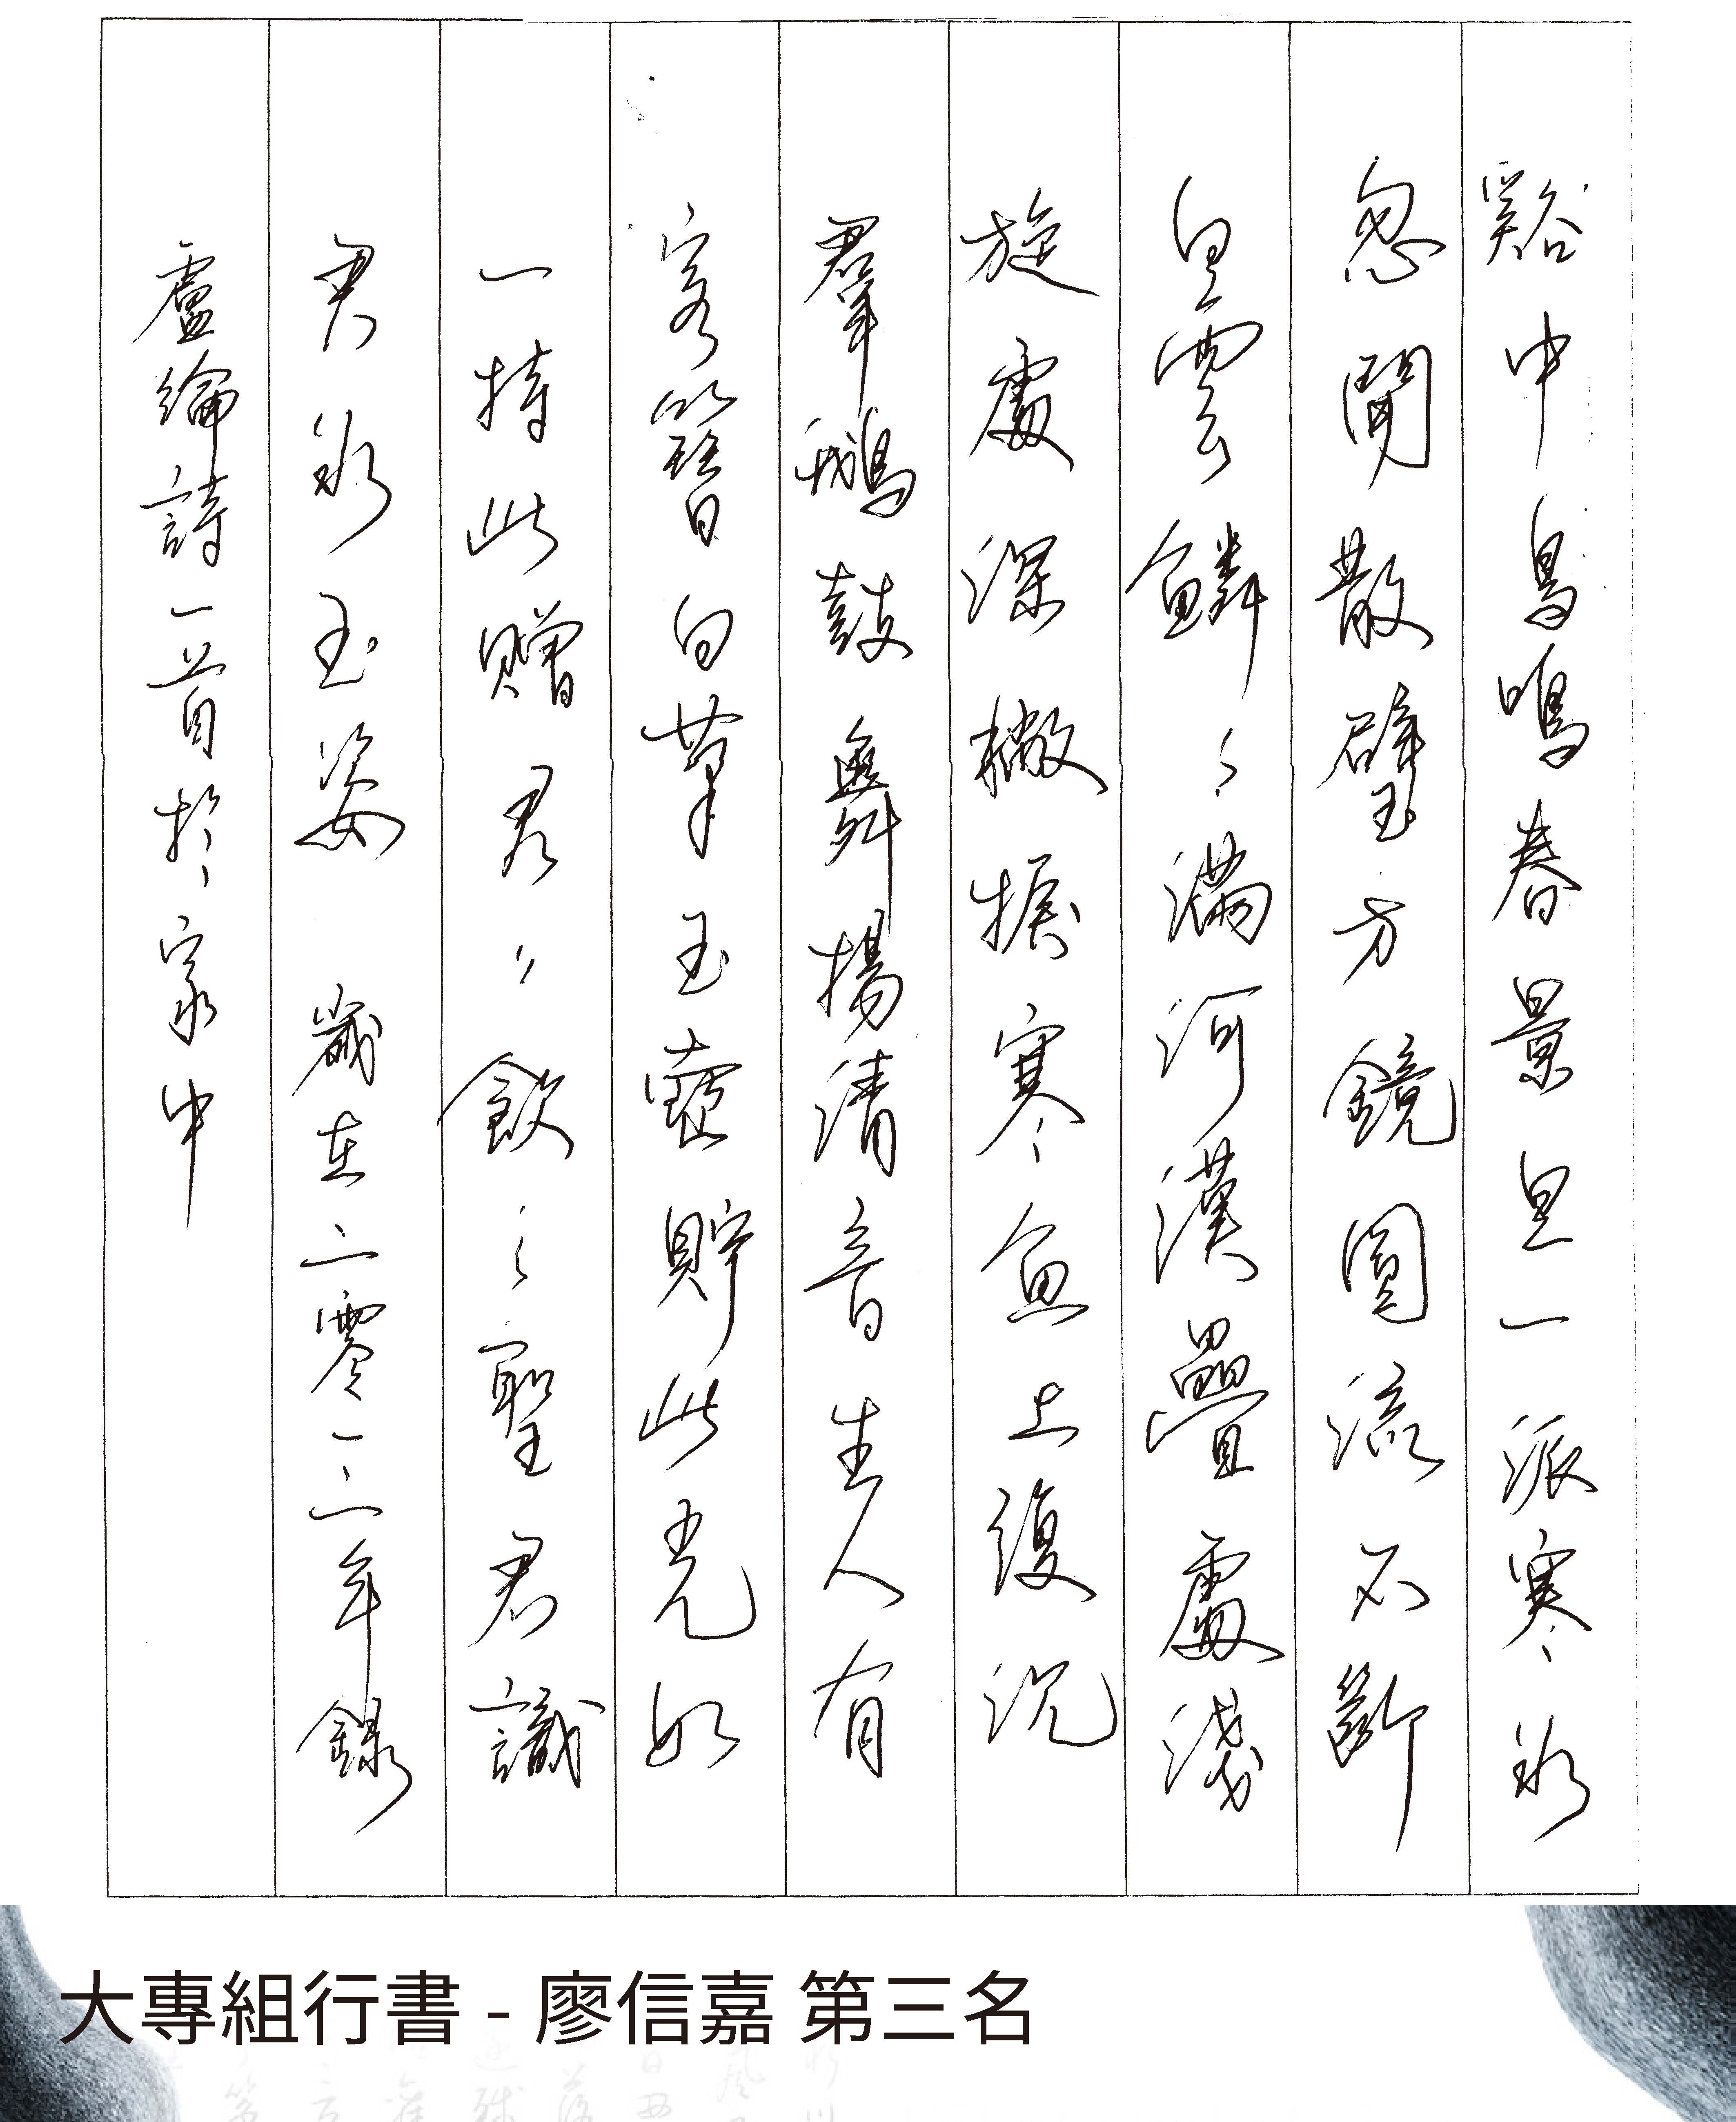 谿中鳥鳴春景旦一派寒冰
忽開散璧方鏡圓流不斷
白雲鱗々滿河漢疊處淺
旋處深撇捩寒魚上復沉
羣鵝鼓舞揚清音主人有
客簪白筆玉壺貯此光如
一持此贈君々飲之聖君識
君冰玉姿 歲在二零一二年錄
盧綸詩一首於家中
大專組行書 - 廖信嘉 第三名